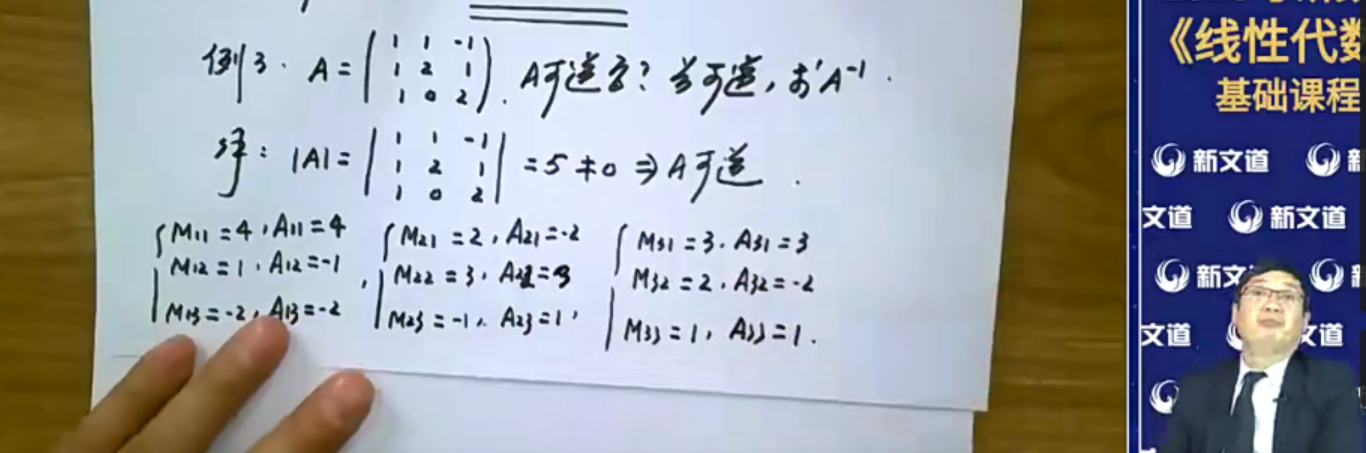 例3. A = ( 1 1 -1
1 2 1
1 0 2 ). A可逆否? 若可逆, 求A⁻¹.
解: |A| = | 1 1 -1
1 2 1
1 0 2 | = 5 ≠ 0 ⇒ A可逆.
M11 = 4, A11 = 4
M12 = 1, A12 = -1
M13 = -2, A13 = -2
M21 = 2, A21 = -2
M22 = 3, A22 = 3
M23 = -1, A23 = 1,
M31 = 3, A31 = 3
M32 = 2, A32 = -2
M33 = 1, A33 = 1.
《线性代数
基础课程
新文道 新
文道 新文道
新文 新
文道 文道